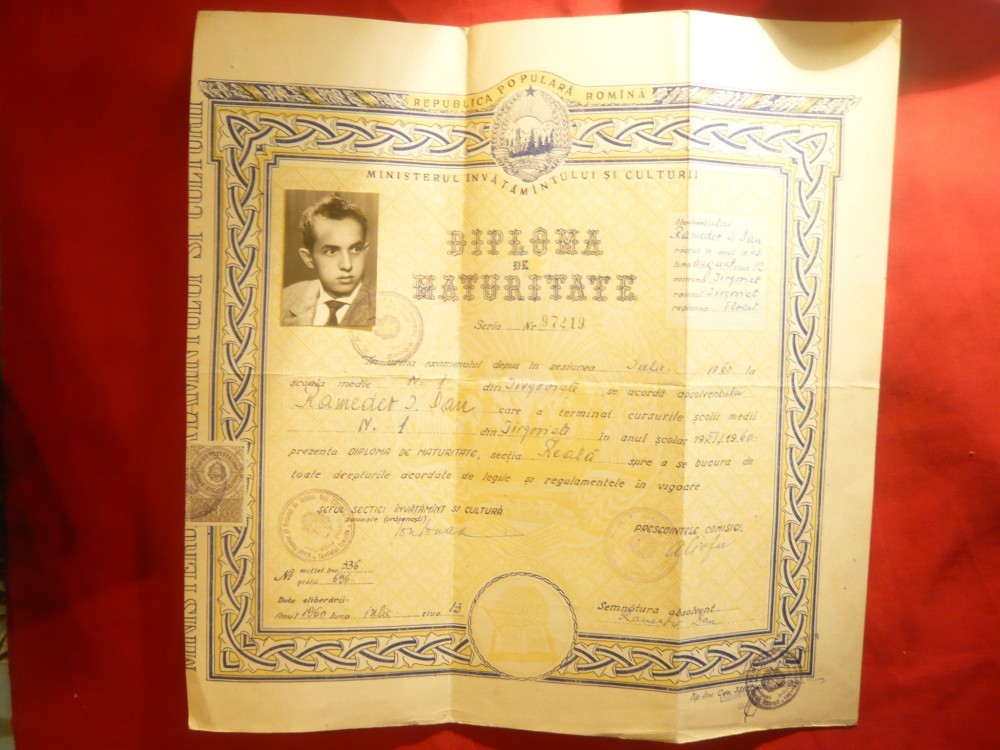 REPUBLICA POPULARĂ ROMÎNĂ
MINISTERUL ÎNVĂȚĂMÎNTULUI ȘI CULTURII
DIPLOMA
DE
MATURITATE
Seria Nr. 97219
Absolventului
Rameder I. Dan
născut în anul
luna august ziua 12
comuna Tîrgoviște
raionul Tîrgoviște
regiunea Ploești
În urma examenului depus în sesiunea Iulie 1960 la
școala medie N. 1 din Tîrgoviște, se acordă absolventului
Rameder I. Dan care a terminat cursurile școlii medii
N. 1 din Tîrgoviște în anul școlar 1959/1960
prezenta DIPLOMĂ DE MATURITATE, secția Reală spre a se bucura de
toate drepturile acordate de legile și regulamentele în vigoare
ȘEFUL SECȚIEI ÎNVĂȚĂMÎNT ȘI CULTURĂ
raionale (orășenești)
PREȘEDINTELE COMISIEI,
No. matricol înv. 436
școlii 696
Data eliberării:
Anul 1960 luna iulie ziua 13
Semnătura absolvent
Rameder Dan